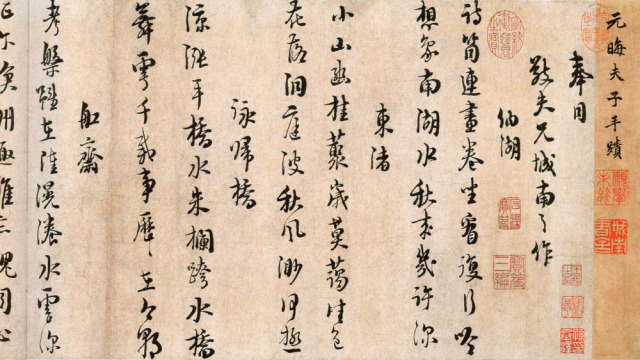 元晦夫子手蹟
奉同
敬夫兄城南之作
納湖
詩筒連畫卷坐看復行吟
想象南湖水秋來幾許深
東渚
小山幽桂叢歲莫藹佳色
花落洞庭波秋風渺何極
詠歸橋
綠漲平湖水朱欄跨小橋
舞雩千載事歷歷在今朝
船齋
考槃雖在陸滉瀁水雲深
正爾滄洲趣難忘魏闕心